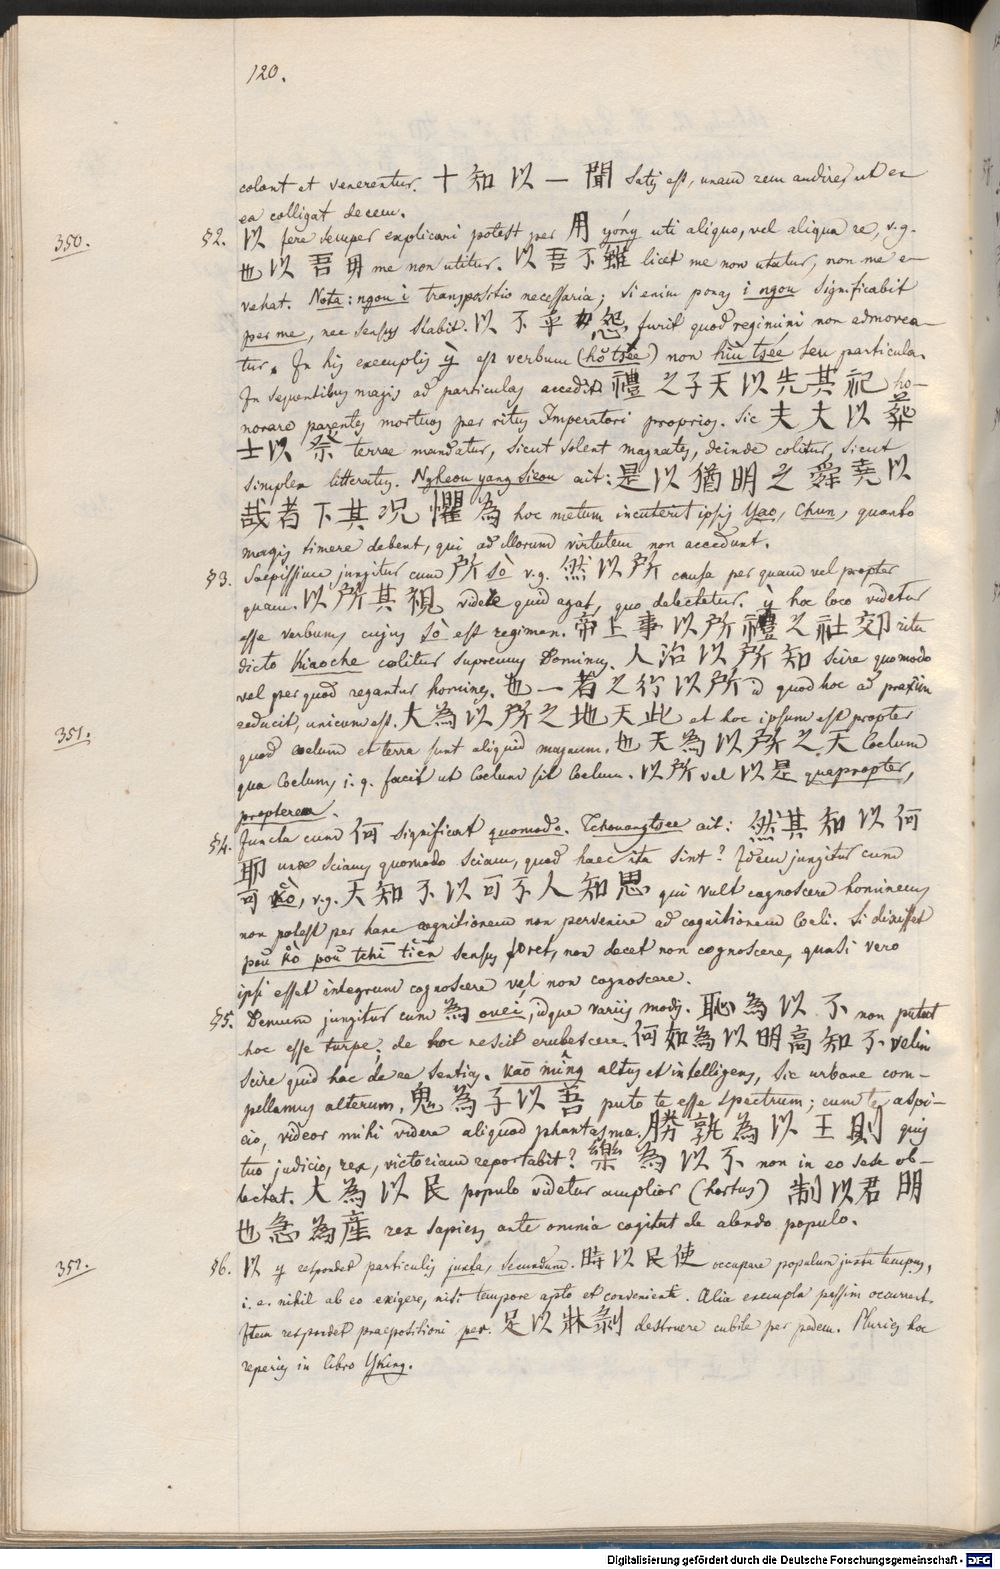 120.
colant et venerentur. 十 知 以 一 聞 satis est, unam rem audire, ut ex
ea colligat decem.
350. §2. 以 fere semper explicari potest per 用 yóng uti aliquo, vel aliqua re, v.g.
也 以 吾 毋 me non utitur. 以 吾 不 雖 licet me non utatur, non me e-
vehat. Nota: ngou i transpositio necessaria; si enim ponas i ngou significabit
per me, nec sensus stabit. 以 不 乎 怨 furit quod regimini non admovea-
tur. In his exemplis ỳ est verbum (hǒ tsée) non hiū tsée seu particula.
In sequentibus magis ad particulas accedit 禮 之 子 天 以 先 其 祀 ho-
norare parentes mortuos per ritus Imperatori proprios. Sic 夫 大 以 葬
士 以 祭 terrae mandatur, sicut solent magnates, deinde colitur, sicut
simplex litteratus. Ngheou yang sieou ait: 是 以 猶 明 之 舜 堯 以
哉 者 下 其 况 懼 為 hoc metum incuterit ipsis Yao, Chun, quanto
magis timere debent, qui ad illorum virtutem non accedunt.
§3. Saepissime jungitur cum 所 sò v.g. 然 以 所 causa per quam vel propter
quam. 以 所 其 視 videte quid agat, quo delectetur. ỳ hoc loco videtur
esse verbum, cujus sò est regimen. 帝 上 事 以 所 禮 之 社 郊 ritu
dicto Kiaoche colitur supremus Dominus. 人 治 以 所 知 scire quomodo
vel per quod regantur homines. 也 一 者 之 行 以 所 id quod hoc ad praxim
351. reducit, unicum est. 大 為 以 所 之 地 天 此 et hoc ipsum est propter
quod coelum et terra sunt aliquid magnum. 也 天 為 以 所 之 天 Coelum
qua Coelum, i.q. facit ut Coelum sit Coelum. 以 所 vel 以 是 quapropter,
propterea.
§4. Juncta cum 何 significat quomodo. Tchouangtsee ait: 然 其 知 以 何
耶 unde sciam quomodo sciam, quod haec ita sint? Idem jungitur cum
可 kò, v.g. 天 知 不 以 可 不 人 知 思 qui vult cognoscere hominem,
non potest per hanc cognitionem non pervenire ad cognitionem Coeli. Si dixisset
poŭ kò poŭ tchī tiēn sensus foret, non decet non cognoscere, quasi vero
ipsi esset integrum cognoscere vel non cognoscere.
§5. Demum jungitur cum 為 ouei, idque variis modis. 恥 為 以 不 non putat
hoc esse turpe; de hoc nescit erubescere. 何 如 為 以 明 高 知 不 velim
scire quid hac de re sentias. kaō mîng altus et intelligens, sic urbane com-
pellamus alterum. 鬼 為 子 以 吾 puto te esse spectrum; cum te aspi-
cio, videor mihi videre aliquod phantasma. 勝 孰 為 以 王 則 quis
tuo judicio, rex, victoriam reportabit? 樂 為 以 不 non in eo sese ob-
lectat. 大 為 以 民 populo videtur amplior (hortus) 制 以 君 明
也 急 為 産 rex sapiens ante omnia cogitat de alendo populo.
352. §6. 以 ỳ respondet particulis juxta, secundum. 時 以 民 使 occupare populum juxta tempus,
i.e. nihil ab eo exigere, nisi tempore apto et conveniente. Alia exempla passim occurrent.
Item respondet praepositioni per. 足 以 牀 剝 destruere cubile per pedem. Pluries hoc
reperies in libro Yking.
Digitalisierung gefördert durch die Deutsche Forschungsgemeinschaft - DFG